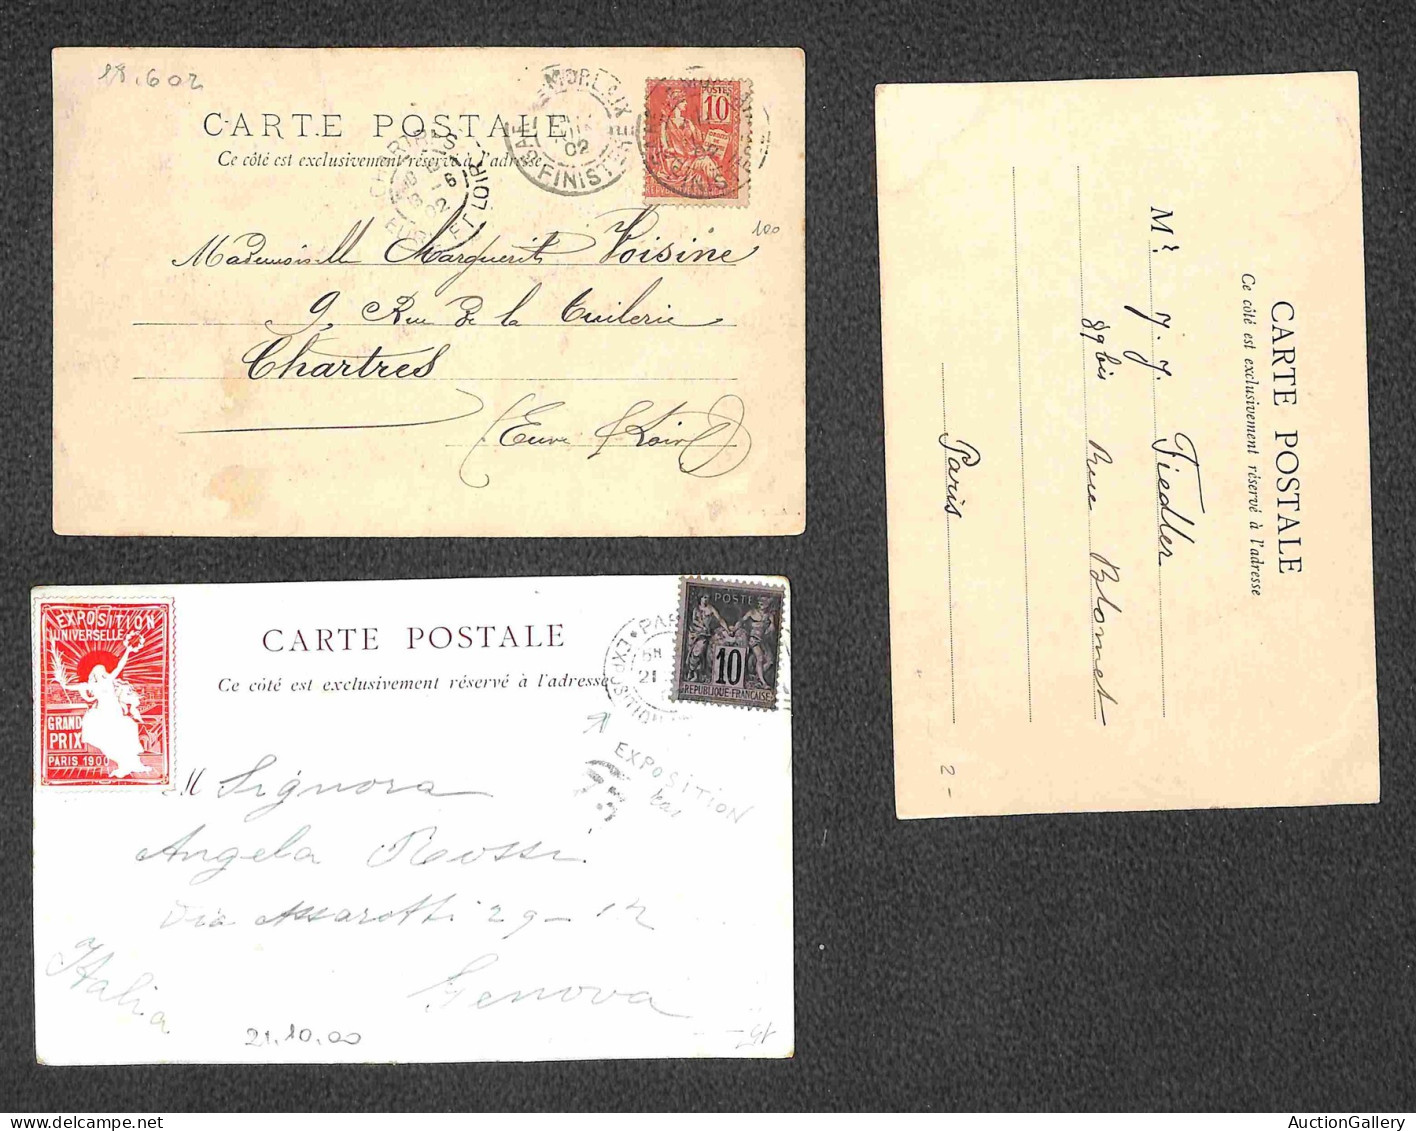 18.6 02
CARTE POSTALE
Ce côté est exclusivement réservé à l'adresse
MORLAIX
02
FINISTERE
POSTES
10
CHARTRES
6
02
EURE ET LOIR
100
Mademoiselle Marguerite Voisine
9, Rue de la Tuilerie
Chartres
(Eure & Loir)
EXPOSITION
UNIVERSELLE
GRAND
PRIX
PARIS 1900
CARTE POSTALE
Ce côté est exclusivement réservé à l'adresse
POSTE
10
REPUBLIQUE FRANÇAISE
21
EXPOSITION
Signora
Angela Rossi
Via Assarotti 29-12
Italia
Genova
21.10.00
15-
CARTE POSTALE
Ce côté est exclusivement réservé à l'adresse
Mr. J. J. Fiedler
89bis Rue Blomet
Paris
2-
AuctionGallery.com